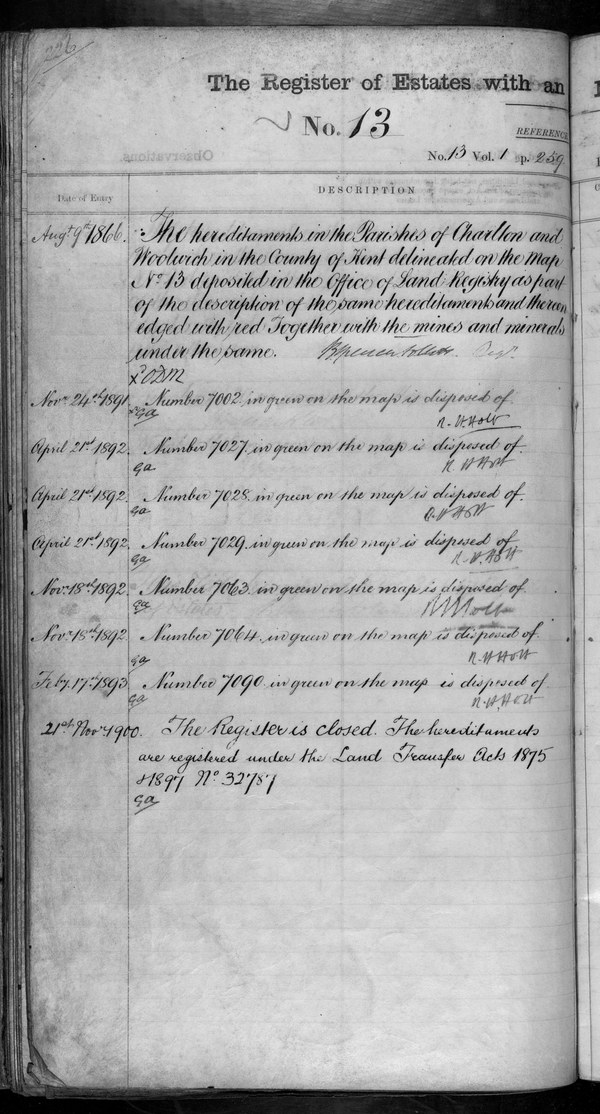 226
The Register of Estates with an
No. 13
REFERENCE
No. 13 Vol. 1 p. 259
Observations
Date of Entry
DESCRIPTION
Augt. 9th 1866. The hereditaments in the Parishes of Charlton and
Woolwich in the County of Kent delineated on the Map
No. 13 deposited in the Office of Land Registry as part
of the description of the same hereditaments and thereon
edged with red Together with the mines and minerals
under the same.
Novr. 24th 1891. Number 7002 in green on the map is disposed of.
ga R. H. Holt
April 21st 1892. Number 7027 in green on the map is disposed of.
ga R. H. Holt
April 21st 1892. Number 7028 in green on the map is disposed of.
ga R. H. Holt
April 21st 1892. Number 7029 in green on the map is disposed of
ga R. H. Holt
Novr. 18th 1892. Number 7063 in green on the map is disposed of
ga R H Holt
Novr. 18th 1892 Number 7064 in green on the map is disposed of.
ga R. H. Holt
Feby. 17th 1893 Number 7090 in green on the map is disposed of.
ga R. H. Holt
21st Novr. 1900. The Register is closed. The hereditaments
are registered under the Land Transfer Acts 1875
& 1897 No. 32787
ga